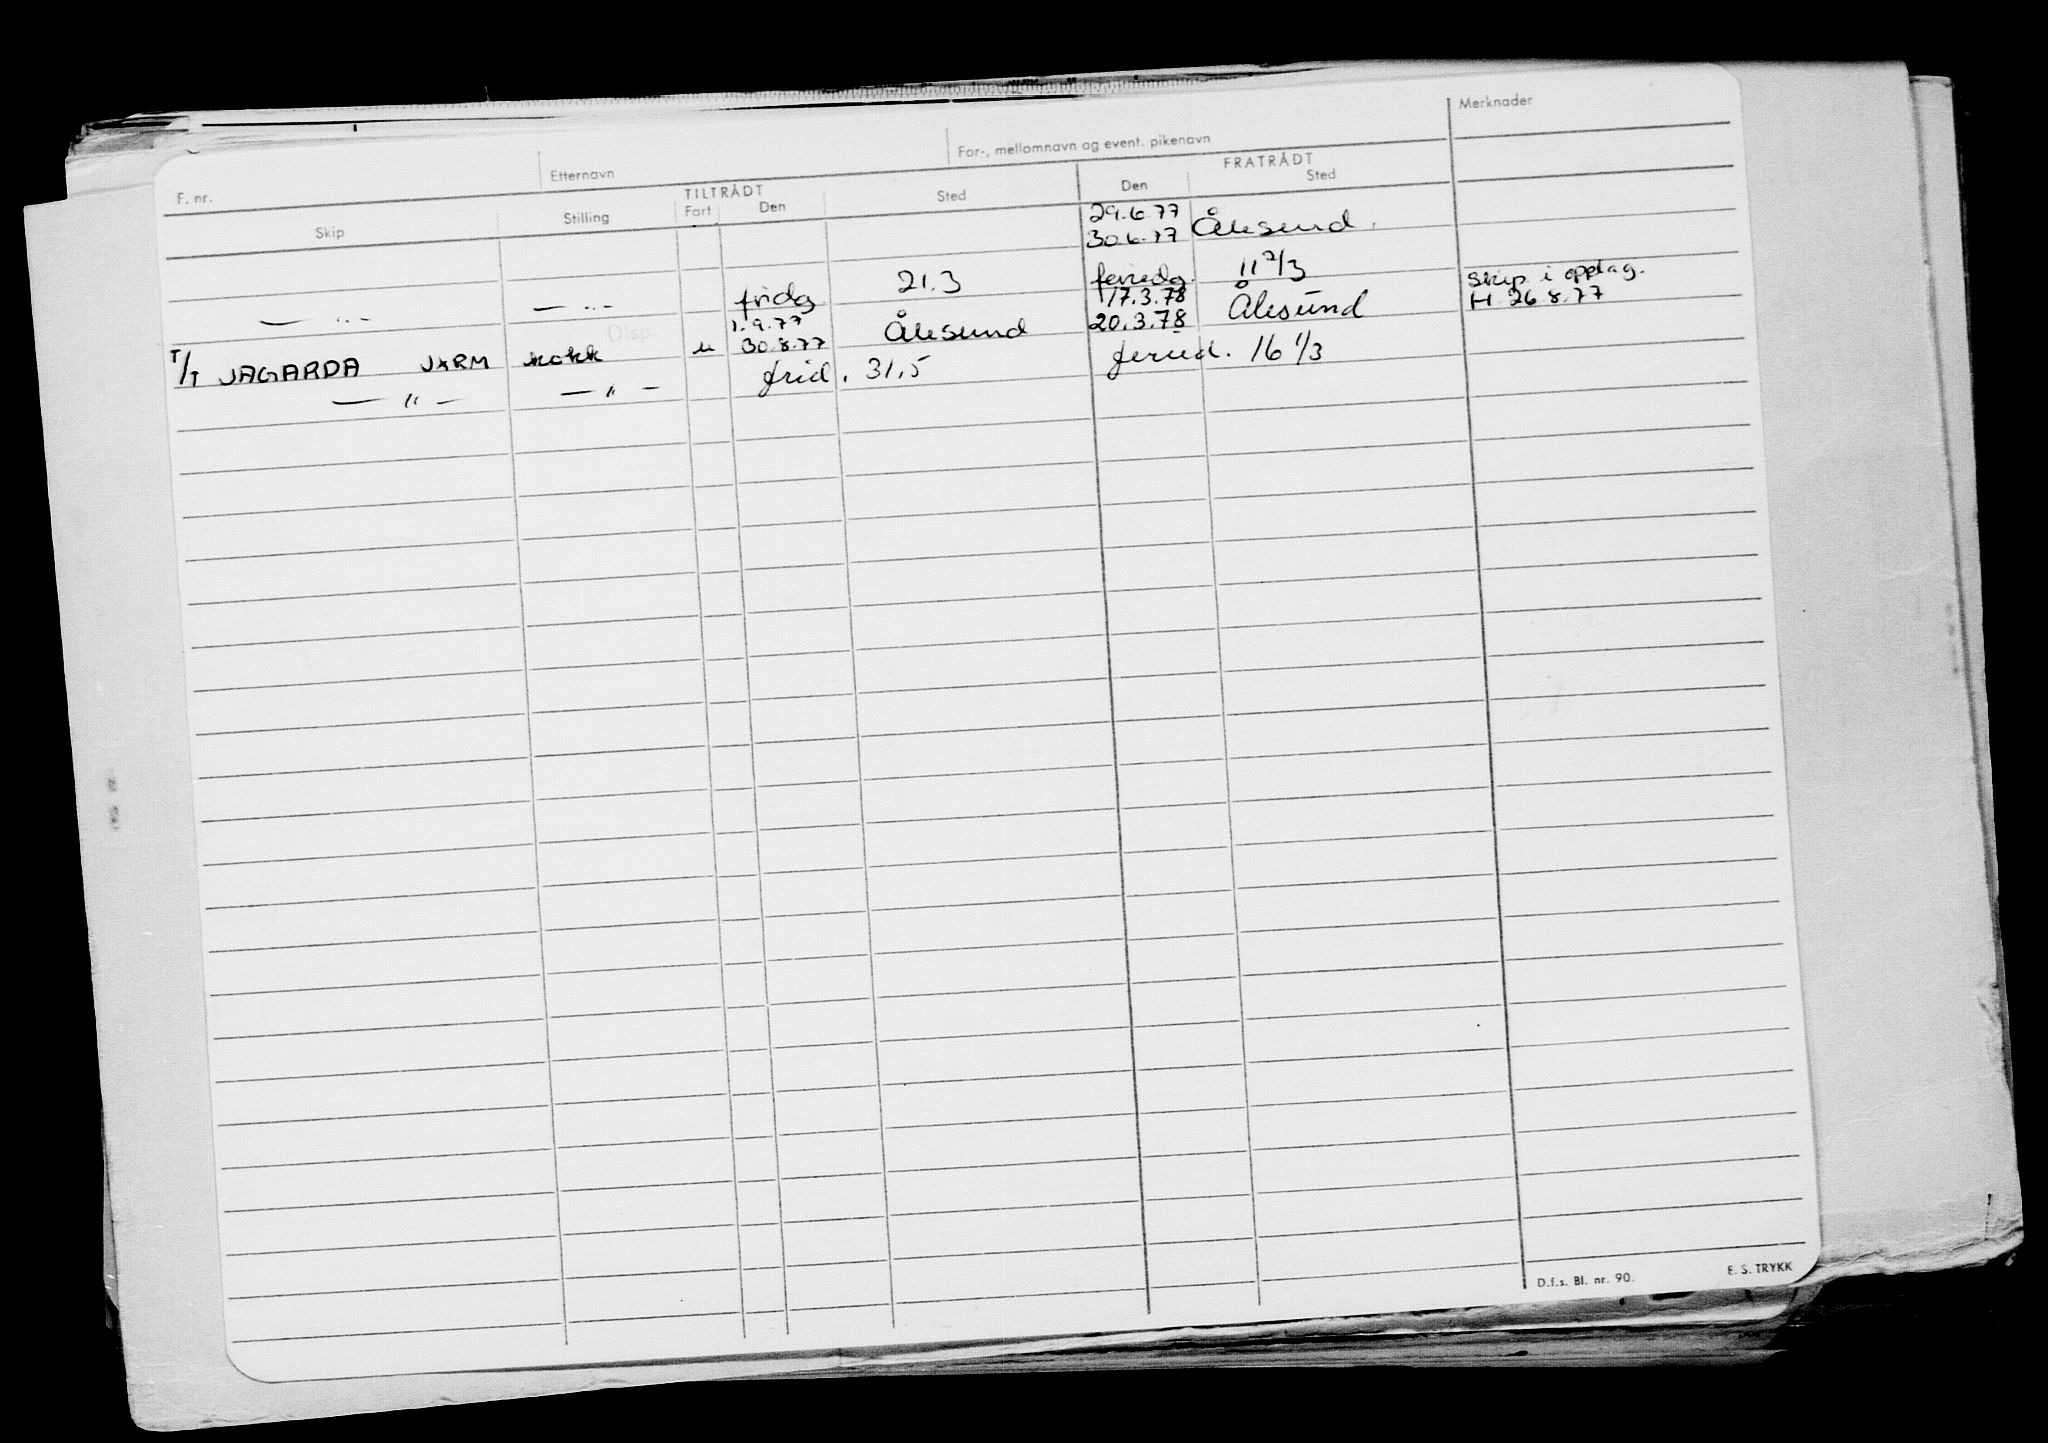 Merknader
F. nr. Etternavn For-, mellomnavn og event. pikenavn
TILTRÅDT FRATRÅDT
Skip Stilling Fart Den Sted Den Sted
29.6.77
30.6.77 Ålesund.
— " — — " — fridg 21.3 feriedg. 11 2/3
1.9.77 17.3.78 Skip i opplag.
T/T JAGARDA JXRM kokk u 30.8.77 Ålesund 20.3.78 Ålesund H. 26.8.77
Disp.
— " — — " — frid. 31,5 feried. 16 1/3
D.f.s. Bl. nr. 90. E. S. TRYKK